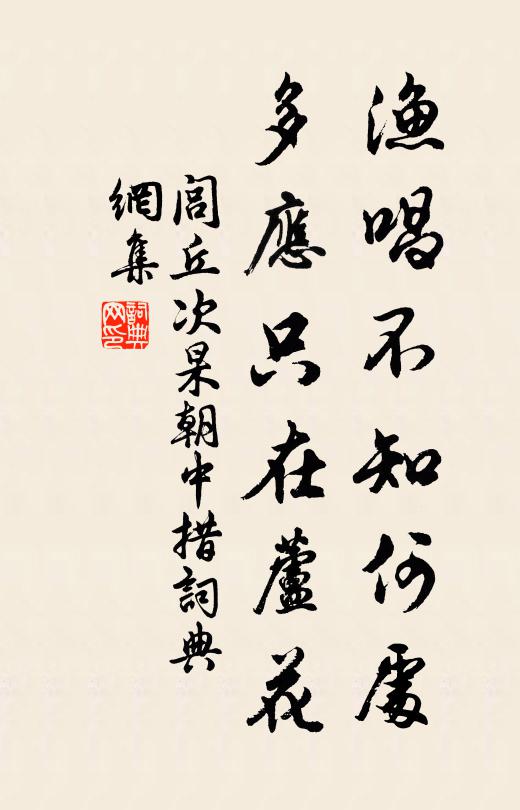 漁唱不知何處
多應只在蘆花
閭丘次杲朝中措詞典
網集
詞典
网印